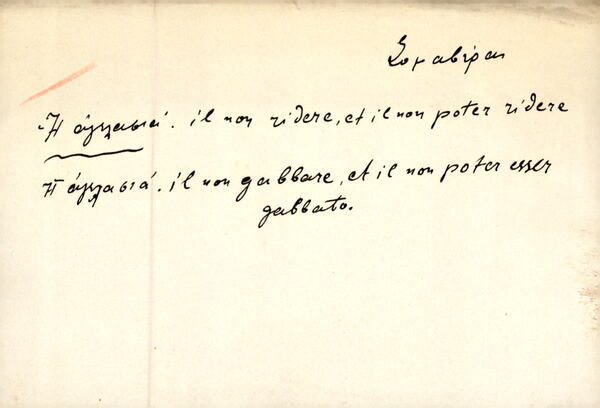 Σομαβέρας
Ἡ ἀγγλασιά. il non ridere, et il non poter ridere
Ἡ ἀγγλασιά. il non gabbare, et il non poter esser
gabbato.